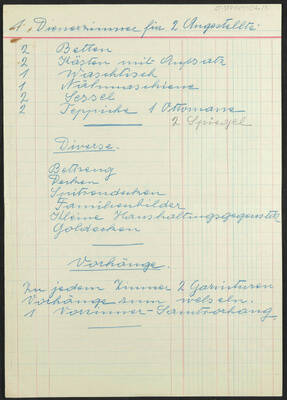 4, Dienerzimmer für 2 Angestellte:
2 Betten
2 Kästen mit Aufsatz
1 Waschtisch
1 Nähmaschiene
2 Sessel
2 Teppiche 1 Ottomane
2 Spiegel
Diverse.
Bettzeug
Decken
Familienbilder
Kleine Haushaltungsgegenstde
Golddecken
Vorhänge.
Zu jedem Zimmer 2 Garnituren
Vorhänge zum wekseln.
1 Vorzimmer-Samtvorhang